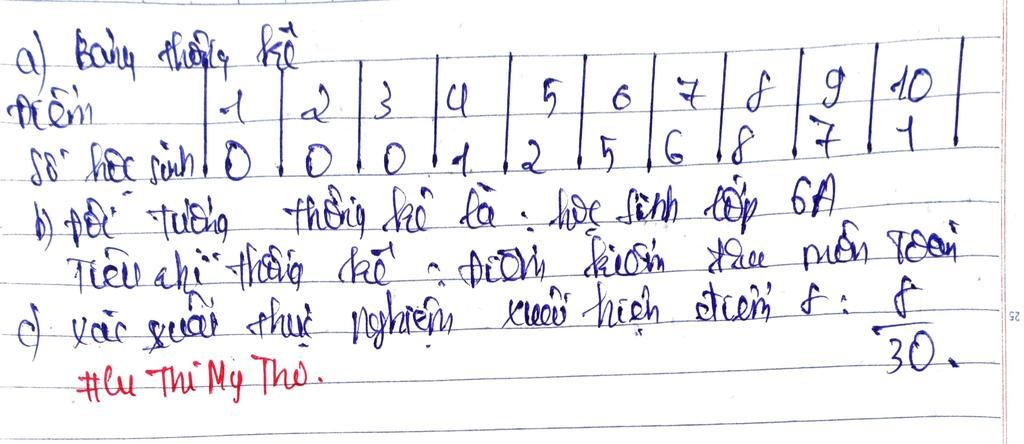 a) Bảng thống kê
Điểm | 1 | 2 | 3 | 4 | 5 | 6 | 7 | 8 | 9 | 10 |
Số học sinh | 0 | 0 | 0 | 1 | 2 | 5 | 6 | 8 | 7 | 1 |
b) Đối tượng thống kê là : học sinh lớp 6A
Tiêu chí thống kê : Điểm kiểm tra môn Toán
c) xác suất thực nghiệm xuất hiện điểm 8 : 8/30.
#Cu Thi My Tho.
25